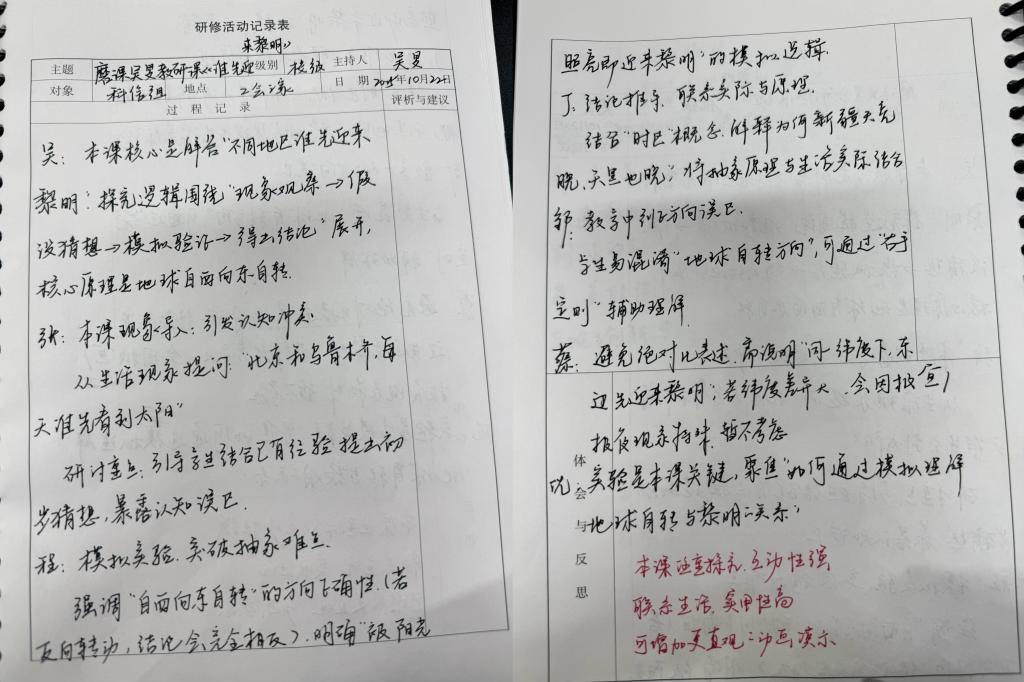 研修活动记录表
来黎明》
主题 磨课吴旻教研课《谁先迎 级别 校级 主持人 吴旻
对象 科信组 地点 工会之家 日期 2025年10月22日
过程记录 评析与建议
吴：本课核心是解答“不同地区谁先迎来
黎明”探究逻辑围绕“现象观察→假
设猜想→模拟验证→得出结论”展开，
核心原理是地球自西向东自转.
张：本课现象导入：引发认知冲突.
从生活现象提问：“北京和乌鲁木齐，每
天谁先看到太阳”
研讨重点：引导学生结合已有经验提出初
步猜想，暴露认知误区.
程：模拟实验.突破抽象难点.
强调“自西向东自转”的方向正确性.（若
反向转动，结论会完全相反）.明确“被阳光
照亮即迎来黎明”的模拟逻辑.
丁：结论推导.联系实际与原理.
结合“时区”概念.解释为何新疆天亮
晚，天黑也晚”将抽象原理与生活实际结合
郭：教学中列方向误区.
学生易混淆“地球自转方向”，可通过“右手
定则”辅助理解
蔡：避免绝对化表述.需说明“同一纬度下，东
边先迎来黎明”；若纬度差异大，会因极昼
极夜现象特殊，暂不考虑
体会与反思
倪：实验是本课关键，聚焦“如何通过模拟理解
地球自转与黎明的关系”
本课注重探究.互动性强
联系生活.实用性高
可增加更直观的动画演示